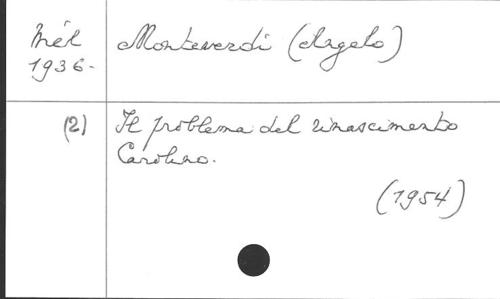 Mél Monteverdi (Angelo)
1936.
(2) Il problema del rinascimento
Carolino.
(1954)